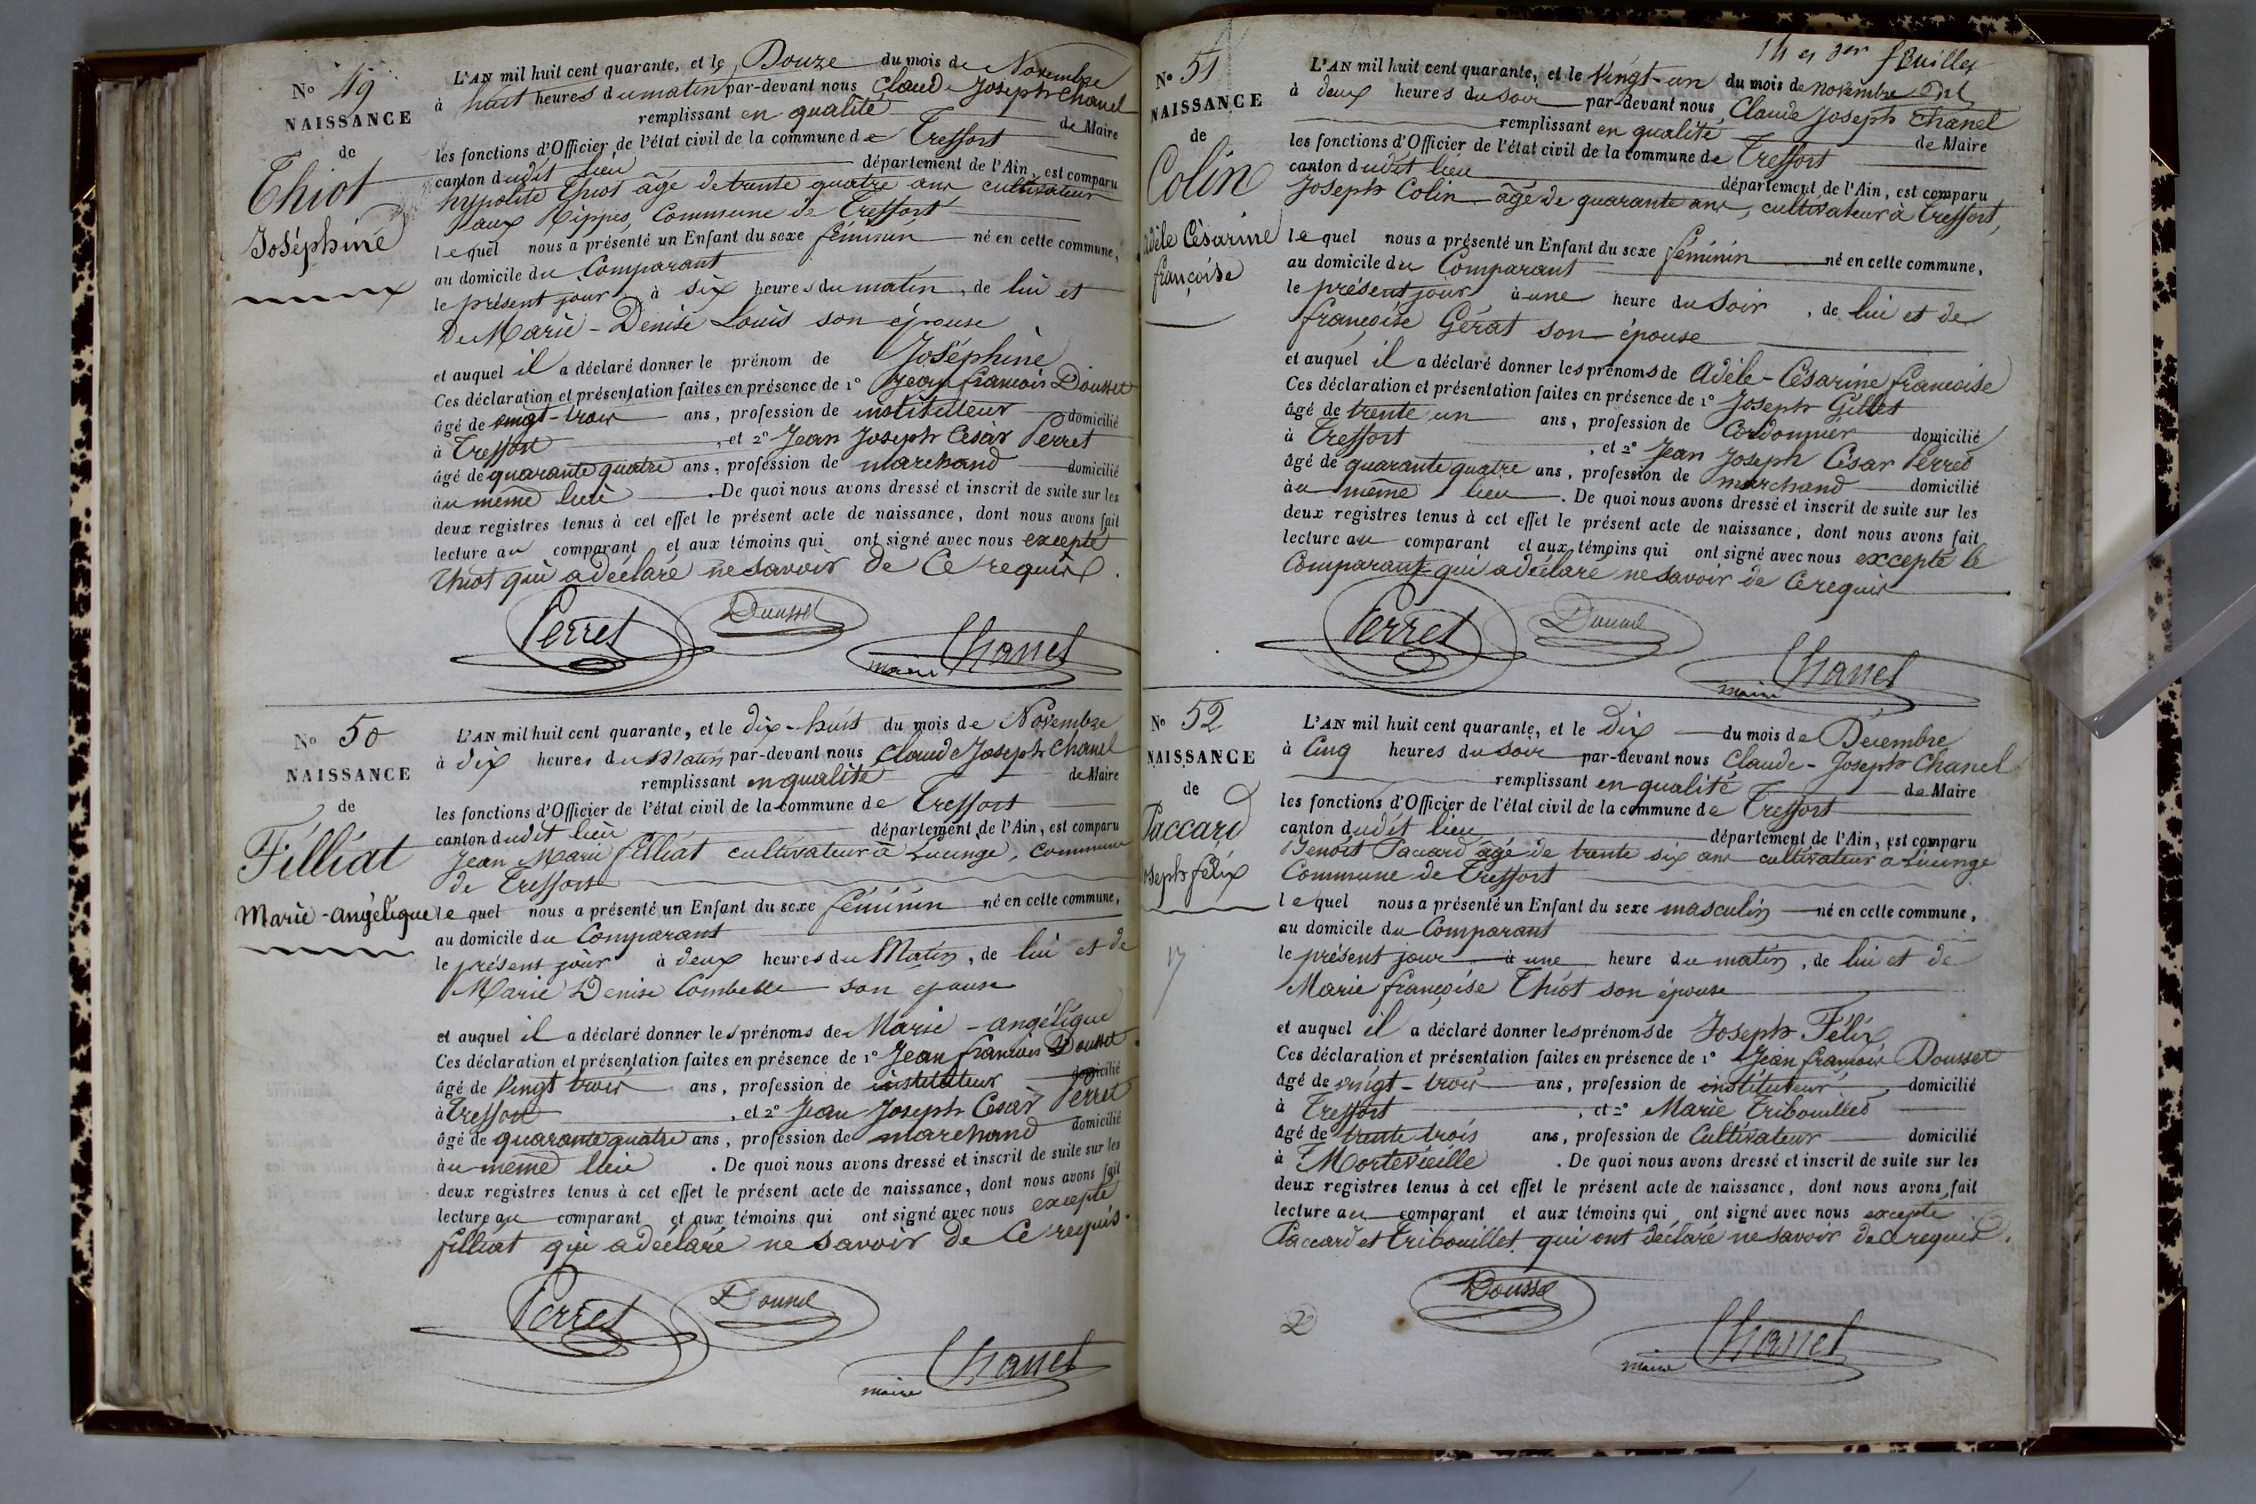 No 49
NAISSANCE
de
Thiot
Joséphine
L'AN mil huit cent quarante, et le Douze du mois de Novembre
à huit heures du matin par-devant nous Claude Joseph Chanel
remplissant en qualité de Maire
les fonctions d'Officier de l'état civil de la commune de Treffort
canton dudit lieu département de l'Ain, est comparu
hypolite Thiot âgé de trente quatre ans cultivateur
aux Rippes Commune de Treffort
lequel nous a présenté un Enfant du sexe féminin né en cette commune,
au domicile du Comparant
le présent jour à six heures du matin, de lui et
de Marie-Denise Louis son épouse
et auquel il a déclaré donner le prénom de Joséphine
Ces déclaration et présentation faites en présence de 1º Jean françois Dousset
âgé de vingt-trois ans, profession de instituteur domicilié
à Treffort, et 2º Jean Joseph César Perret
âgé de quarante quatre ans, profession de marchand domicilié
au même lieu. De quoi nous avons dressé et inscrit de suite sur les
deux registres tenus à cet effet le présent acte de naissance, dont nous avons fait
lecture au comparant et aux témoins qui ont signé avec nous excepté
Thiot qui a déclaré ne savoir de Ce requis.
Perret Dousset
maire Chanel
No 50
NAISSANCE
de
Filliat
Marie-angélique
L'AN mil huit cent quarante, et le dix-huit du mois de Novembre
à dix heures du Matin par-devant nous Claude Joseph Chanel
remplissant en qualité de Maire
les fonctions d'Officier de l'état civil de la commune de Treffort
canton dudit lieu département de l'Ain, est comparu
Jean Marie filliat cultivateur à Lucinge, commune
de Treffort
lequel nous a présenté un Enfant du sexe féminin né en cette commune,
au domicile du Comparant
le présent jour à deux heures du Matin, de lui et de
Marie Denise Combette son épouse
et auquel il a déclaré donner les prénoms de Marie-angélique
Ces déclaration et présentation faites en présence de 1º Jean françois Dousset
âgé de vingt trois ans, profession de instituteur domicilié
à Treffort, et 2º Jean Joseph César Perret
âgé de quarante quatre ans, profession de marchand domicilié
au même lieu. De quoi nous avons dressé et inscrit de suite sur les
deux registres tenus à cet effet le présent acte de naissance, dont nous avons fait
lecture au comparant et aux témoins qui ont signé avec nous excepté
filliat qui a déclaré ne savoir de Ce requis.
Perret Dousset
maire Chanel
14 et der feuillet
No 51
NAISSANCE
de
Colin
Adèle Césarine
françoise
L'AN mil huit cent quarante, et le vingt-un du mois de novembre
à deux heures du soir par-devant nous Claude Joseph Chanel
remplissant en qualité de Maire
les fonctions d'Officier de l'état civil de la commune de Treffort
canton dudit lieu département de l'Ain, est comparu
Joseph Colin âgé de quarante ans, cultivateur à Treffort,
lequel nous a présenté un Enfant du sexe féminin né en cette commune,
au domicile du Comparant
le présent jour à une heure du soir, de lui et de
françoise Gérat son épouse
et auquel il a déclaré donner les prénoms de Adèle-Césarine françoise
Ces déclaration et présentation faites en présence de 1º Joseph Gillet
âgé de trente un ans, profession de Cordonnier domicilié
à Treffort, et 2º Jean Joseph César Perret
âgé de quarante quatre ans, profession de marchand domicilié
au même lieu. De quoi nous avons dressé et inscrit de suite sur les
deux registres tenus à cet effet le présent acte de naissance, dont nous avons fait
lecture au comparant et aux témoins qui ont signé avec nous excepté le
Comparant qui a déclaré ne savoir de ce requis
Perret Dousset
maire Chanel
No 52
NAISSANCE
de
Paccard
Joseph félix
17
L'AN mil huit cent quarante, et le dix du mois de Décembre
à Cinq heures du soir par-devant nous Claude-Joseph Chanel
remplissant en qualité de Maire
les fonctions d'Officier de l'état civil de la commune de Treffort
canton dudit lieu département de l'Ain, est comparu
Benoit Paccard âgé de trente six ans cultivateur à Lucinge
Commune de Treffort
lequel nous a présenté un Enfant du sexe masculin né en cette commune,
au domicile du Comparant
le présent jour à une heure du matin, de lui et de
Marie françoise Thiot son épouse
et auquel il a déclaré donner les prénoms de Joseph Félix
Ces déclaration et présentation faites en présence de 1º Jean françois Dousset
âgé de vingt-trois ans, profession de instituteur domicilié
à Treffort, et 2º Marie Tribouillet
âgé de trente trois ans, profession de Cultivateur domicilié
à Mortevieille. De quoi nous avons dressé et inscrit de suite sur les
deux registres tenus à cet effet le présent acte de naissance, dont nous avons fait
lecture au comparant et aux témoins qui ont signé avec nous excepté
Paccard et Tribouillet qui ont déclaré ne savoir de ce requis.
Dousset
maire Chanel